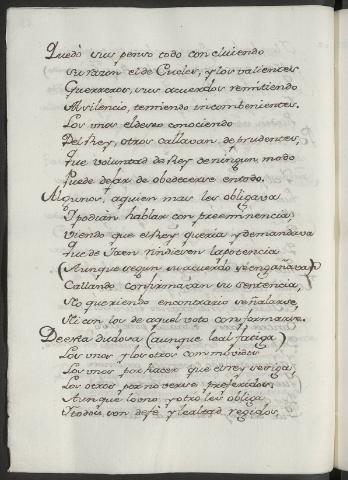 Quedó sus penso todo concluiendo
Su razon el de Cueler, y los valientes
Guerreros, sus acuerdos remitiendo
Al silencio, temiendo incombenientes.
Los unos el deseo conociendo
Del Rey, otros callavan de prudentes,
Que voluntad de Rey de ningun modo
Puede dejar de obedecerse en todo.
Algunos, aquien mas les obligava
I podian hablar con preeminencia,
Viendo que el Rey queria y demandava
que de Jaen rindiesen la potencia
(Aunque segun su acuerdo se engañava)
Callando confirmavan su sentencia,
No queriendo encontrario señalarse,
Ni con los de aquel voto conformarse.
De esta dudosa (aunque leal fatiga)
Los unos y los otros conmovidos
Los unos por hacer que el rey se siga,
Los otros por no verse preferidos,
Aunque lo uno y otro les obliga
I todos, son de fe y lealtad regidos,